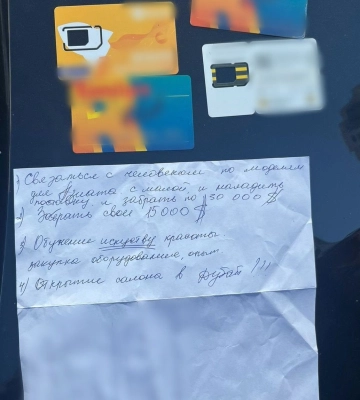 1) Связаться с человеком по моделям
для с малой, и наладить
поставку и забрать по 30 000 $
2) Забрать свои 15000 $
3) Обучение искуству красоты
закупка оборудование, опыт
4) Открытие салона в Дубай !!!